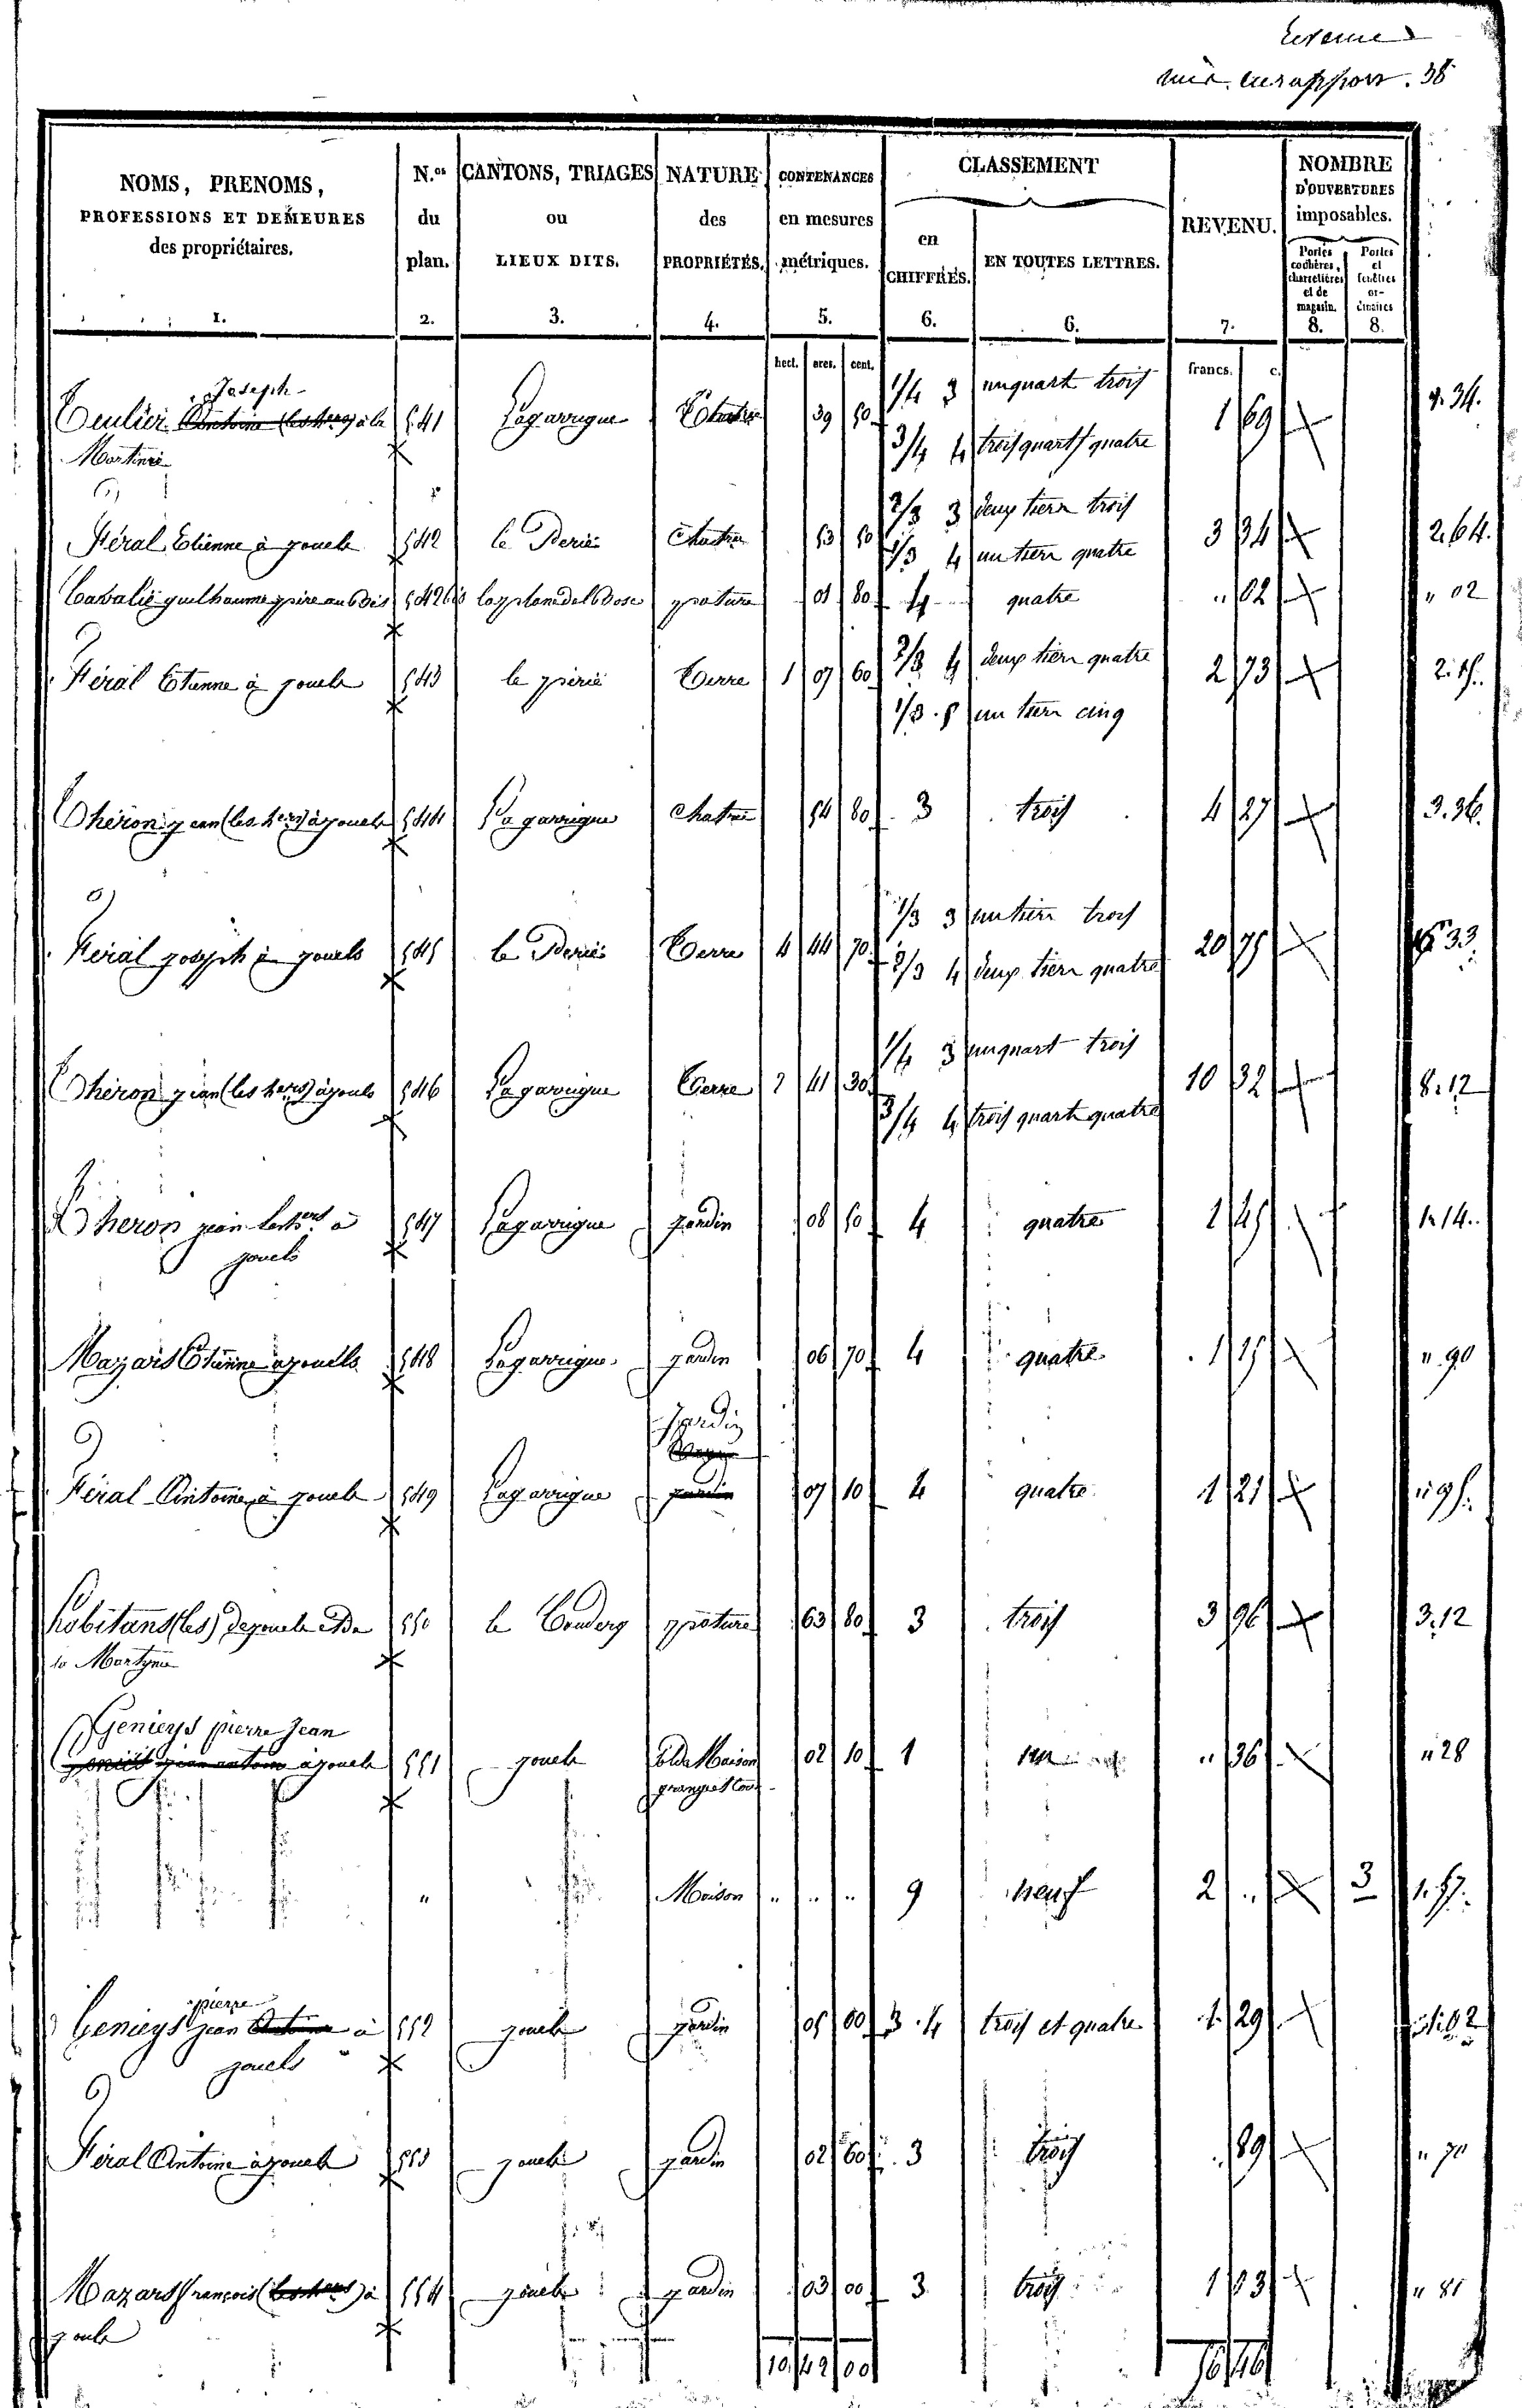 Revenu
mis en rapport. 38
NOMS, PRENOMS,
PROFESSIONS ET DEMEURES
des propriétaires.
1.
N.os
du
plan.
2.
CANTONS, TRIAGES
ou
LIEUX DITS.
3.
NATURE
des
PROPRIÉTÉS.
4.
CONTENANCES
en mesures
métriques.
5.
CLASSEMENT
en
CHIFFRES.
6.
EN TOUTES LETTRES.
6.
REVENU.
7.
NOMBRE
D'OUVERTURES
imposables.
Portes cochères, charretières et de magasin.
8.
Portes et fenêtres ordinaires
8.
hect. ares. cent. francs. c.
Joseph 1/4 3 un quart trois
Teulier Antoine (les hers) à la 541 Lagarrigue 39 50 1 69
Martinié 3/4 4 trois quarts quatre
2/3 3 deux tiers trois
Féral Etienne à jouels 542 le Perié Chatre 53 50 3 34 2.64.
1/3 4 un tiers quatre
Cavalié guilhaume père au 542 bis la plane del Bosc pature 01 80 4 quatre " 02 " 02
2/3 4 deux tiers quatre
Féral Etienne à jouels 543 le perié Terre 1 07 60 2 73 2.15.
1/3 5 un tiers cinq
Théron jean (les hers) à jouels 544 Lagarrigue Chatre 54 80 3 trois 4 27 3.36.
1/3 3 un tiers trois
Féral joseph à jouels 545 le Perié Terre 4 44 70 20 75
2/3 4 deux tiers quatre
1/4 3 un quart trois
Théron jean (les hers) à jouels 546 Lagarrigue Terre 2 41 30 10 32 8.12
3/4 4 trois quarts quatre
Théron jean les hers à 547 Lagarrigue jardin 08 50 4 quatre 1 45 1.14.
jouels
Mazars Etienne à jouels 548 Lagarrigue jardin 06 70 4 quatre 1 15 " 90
Jardin
Féral Antoine à jouels 549 Lagarrigue jardin 07 10 4 quatre 1 21 " 95.
habitans (les) de jouels et de 550 le Couderg pature 63 80 3 trois 3 96 3.12
la Martynie
Genieys pierre Jean
à jouels 551 jouels Sol de Maison 02 10 1 un " 36 " 28
grange et Cour
" Maison " " " 9 neuf 2 " 3 1.57.
pierre
Genieys jean Antoine à 552 jouels jardin 05 00 3.4 trois et quatre 1 29 1.02
jouels
Féral Antoine à jouels 553 jouels jardin 02 60 3 trois " 89 " 70
Mazars françois (les hers) à 554 jouels jardin 03 00 3 trois 1 03 " 81
jouels
10 42 00 56 46